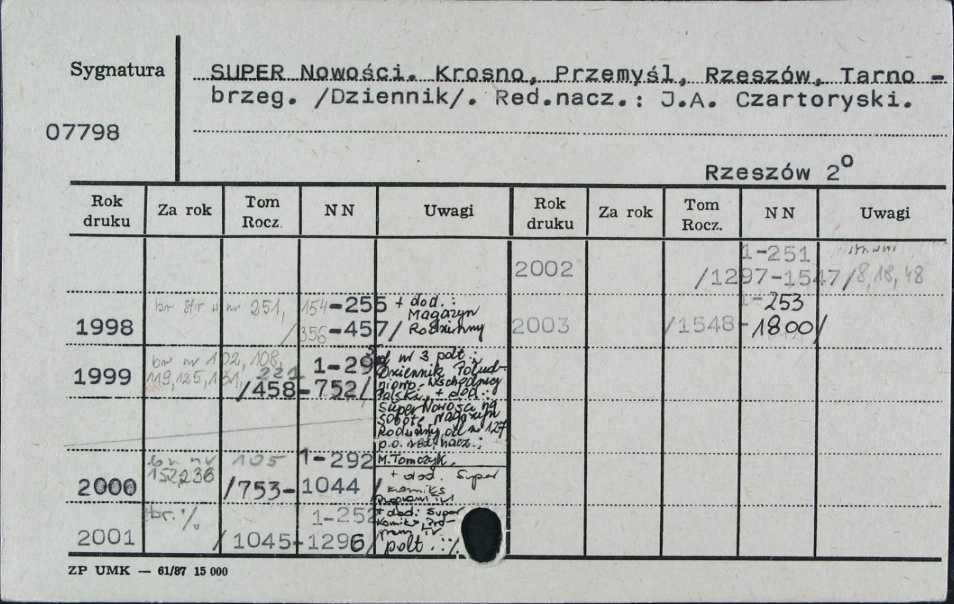 Sygnatura
SUPER Nowości. Krosno, Przemyśl, Rzeszów, Tarno-
brzeg. /Dziennik/. Red.nacz.: J.A. Czartoryski.
07798
Rzeszów 2°
Rok druku Za rok Tom Rocz. NN Uwagi Rok druku Za rok Tom Rocz. NN Uwagi
2002 1-251
/1297-1547/ 8,18,48
1998 251, 154-255 + dod.:
Magazyn
/356-457/ Rodzinny
2003 1-253
/1548-1800/
1999 br nr 102, 108,
119,125,131, 221 1-295
/458-752/
od nr 3 podt.:
Dziennik Połud-
niowo-Wschodniej
Polski, + dod.:
Super Nowości na
sobotę, Magazyn
Rodzinny, od nr 127
p.o. red. nacz.:
M. Tomczyk,
2000 br nr 105
152,236 1-292
/753-1044/
+ dod. Super
komiks
Program tv
2001 1-252
/1045-1296/
+ dod: Super
Komiks, Pro-
gram TV
podt. :/.
ZP UMK — 61/87 15 000